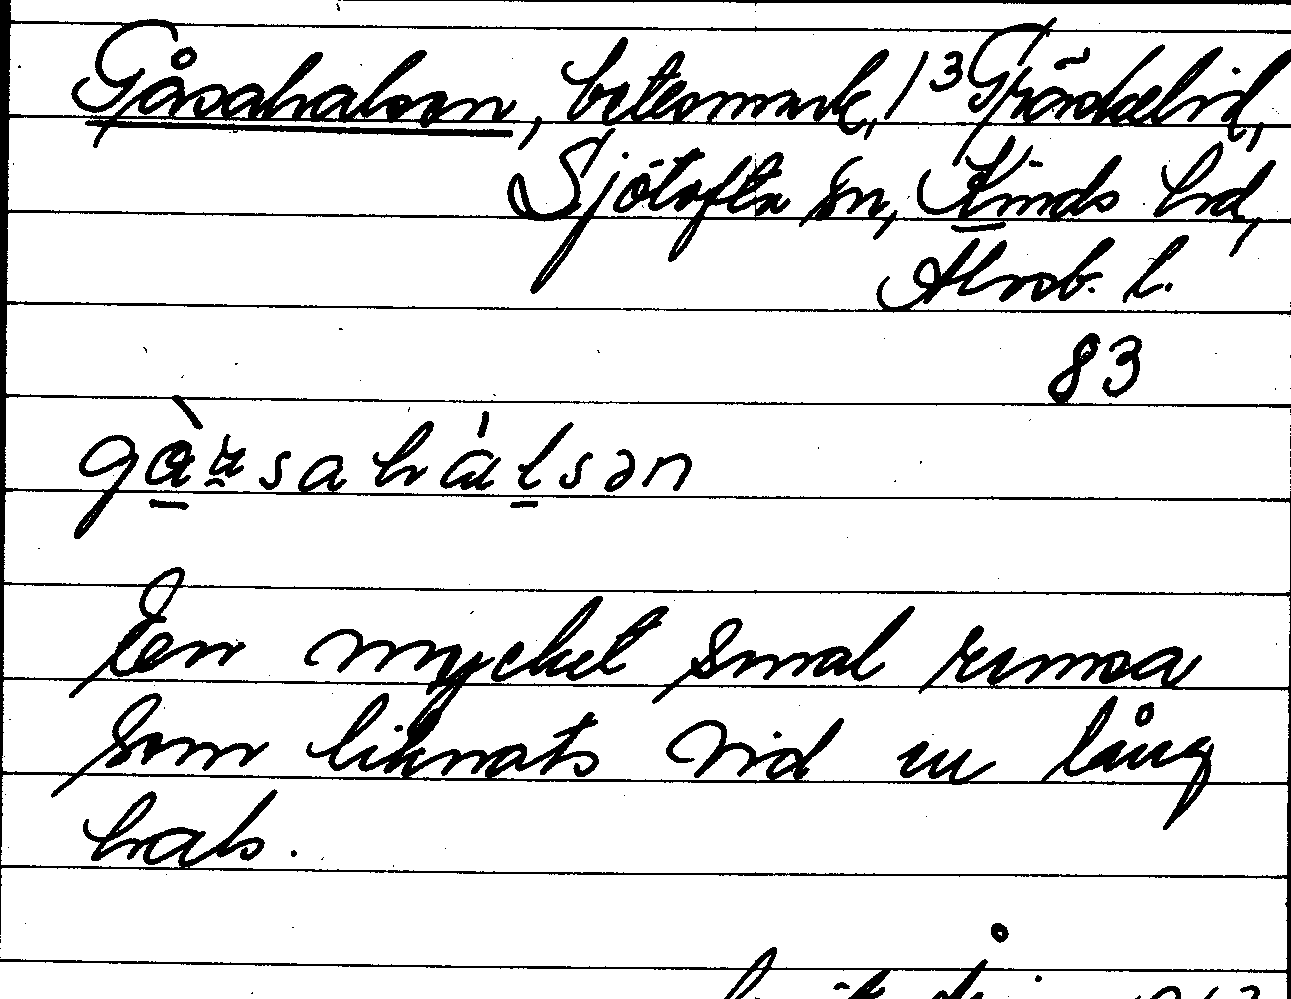 Gåsahalsen, betesmark, 13 Gräddelid,
Sjötofta sn, Kinds hd,
Älvsb. l.
83
En mycket smal remsa
som liknats vid en lång
hals.